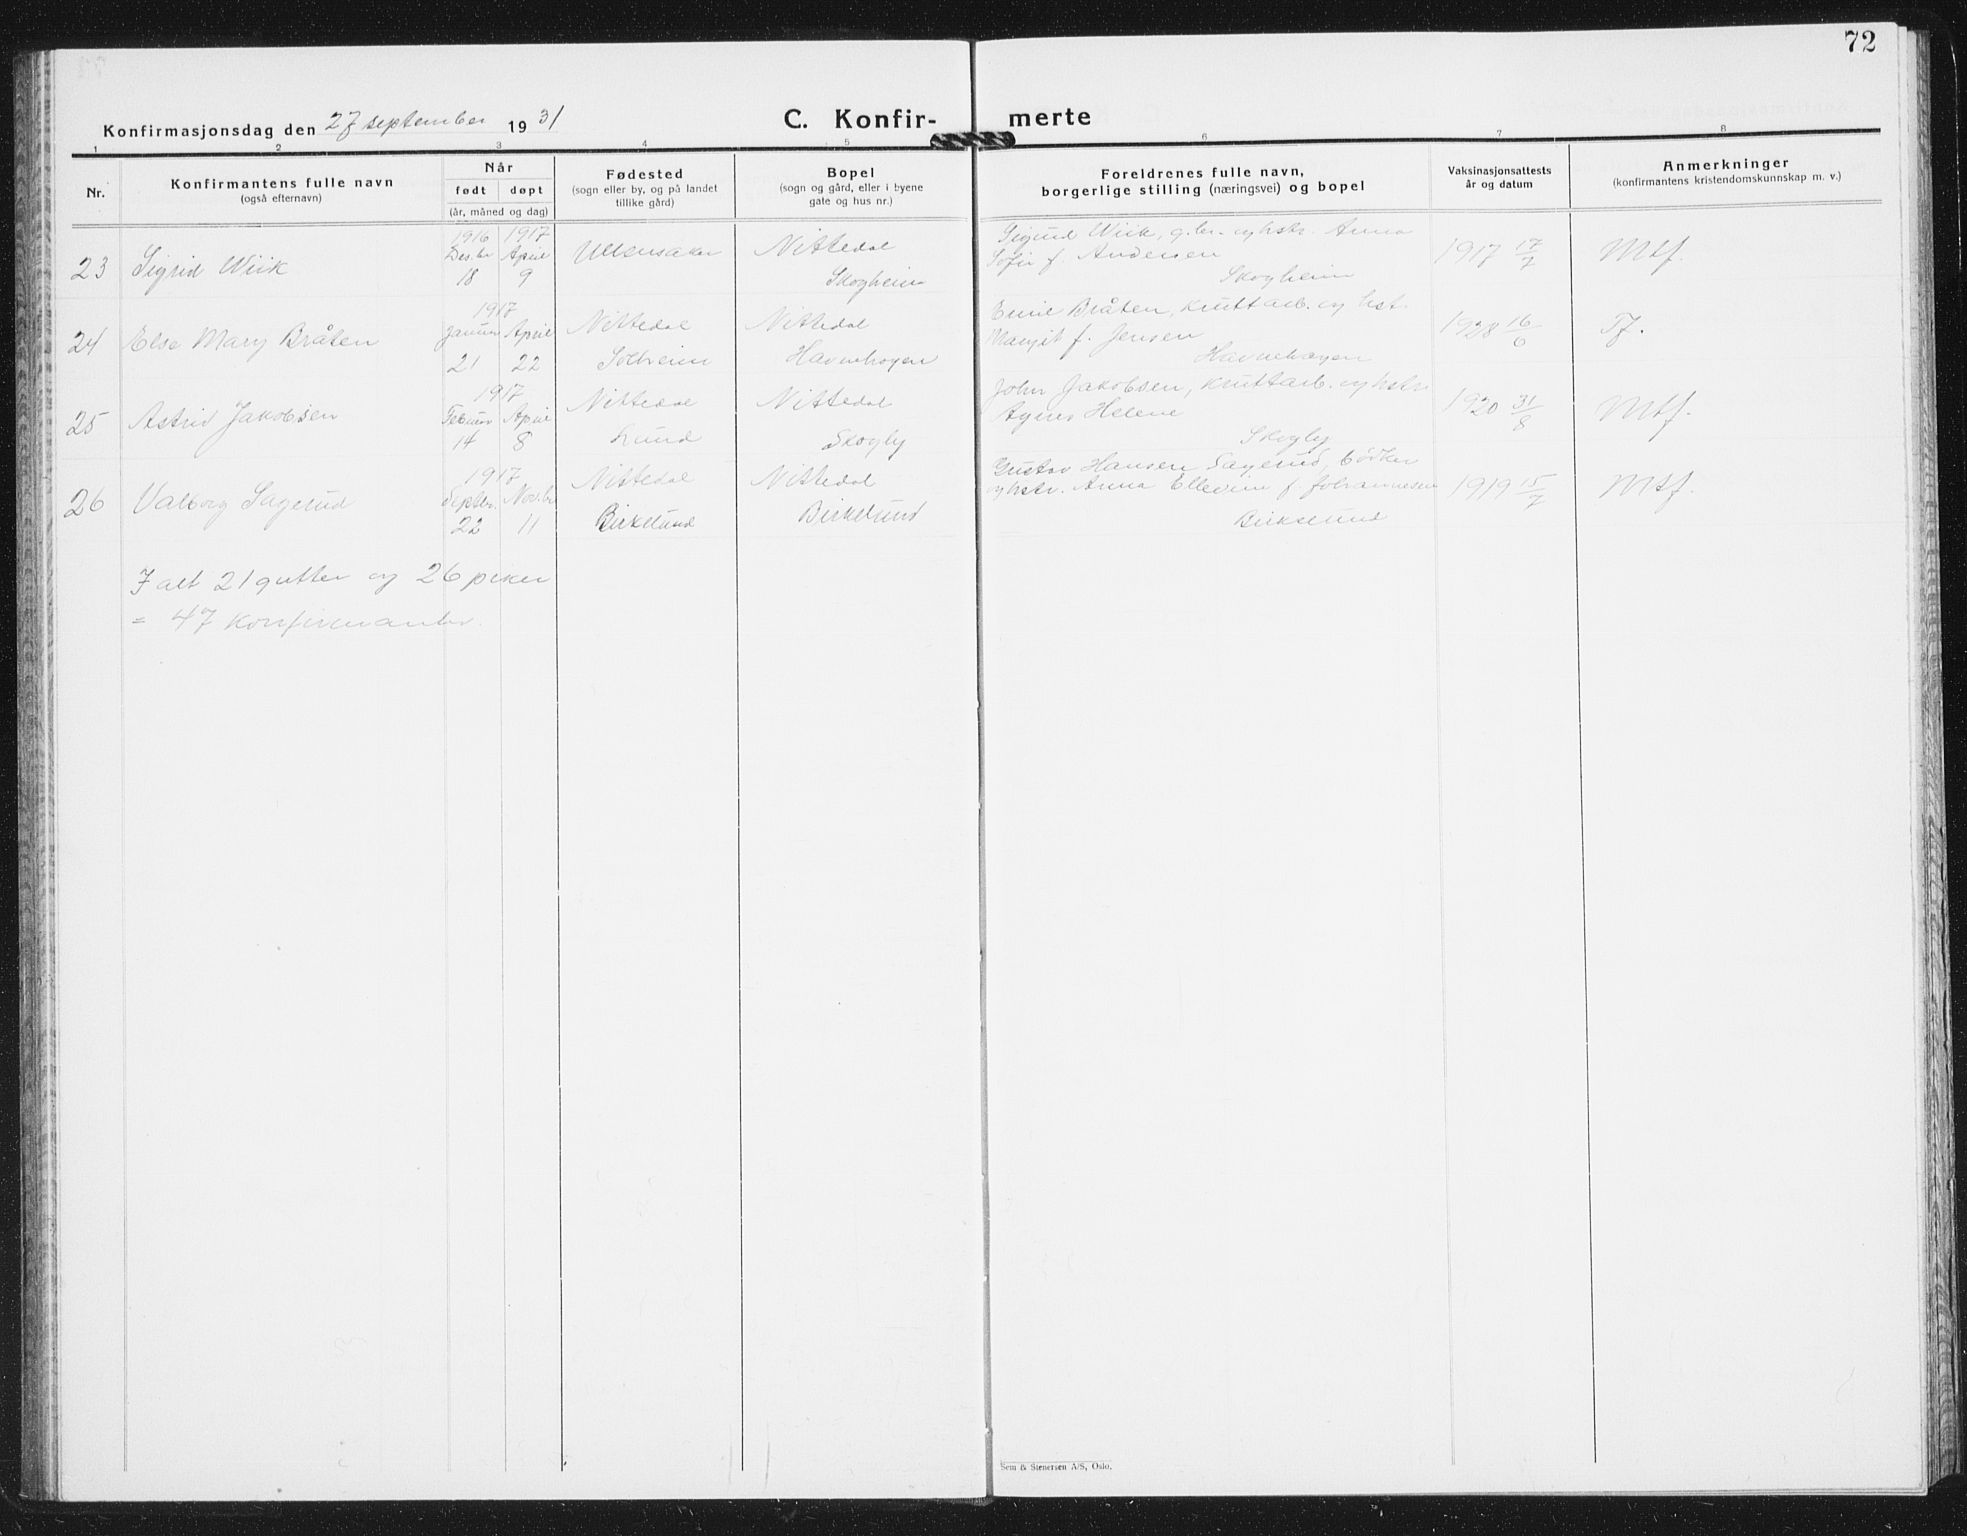 72
Konfirmasjonsdag den 27 september 1931
C. Konfirmerte
1 2 3 4 5 6 7 8
Nr.
Konfirmantens fulle navn
(også efternavn)
Når
født døpt
(år, måned og dag)
Fødested
(sogn eller by, og på landet
tillike gård)
Bopel
(sogn og gård, eller i byene
gate og hus nr.)
Foreldrenes fulle navn,
borgerlige stilling (næringsvei) og bopel
Vaksinasjonsattests
år og datum
Anmerkninger
(konfirmantens kristendomskunnskap m. v.)
23 Sigrid Wiik
1916 Des.br 18
1917 April 9
Ullensaker
Nittedal
Skogheim
Sigurd Wiik, g.br. og hstr. Anna
Sofie f. Andersen
Skogheim
1917 17/7
Mtf.
24 Else Mary Bråten
1917
Januar 21
April 22
Nittedal
Solheim
Nittedal
Havnehagen
Emil Bråten, kruttarb. og hst.
Margit f. Jensen
Havnehagen
1928 16/6
Tf.
25 Astrid Jakobsen
1917
Februar 14
April 8
Nittedal
Lund
Nittedal
Skogly
John Jakobsen, kruttarb. og hstr.
Agnes Helene
Skogly
1920 31/8
Mtf.
26 Valborg Sagerud
1917
Septbr. 22
Nov.br 11
Nittedal
Birkelund
Nittedal
Birkelund
Gustav Hansen Sagerud, bödker
og hstr. Anna Ellevine f. Johannesen
Birkelund
1919 15/7
Mtf.
I alt 21 gutter og 26 piker
= 47 konfirmanter.
Sem & Stenersen A/S, Oslo.